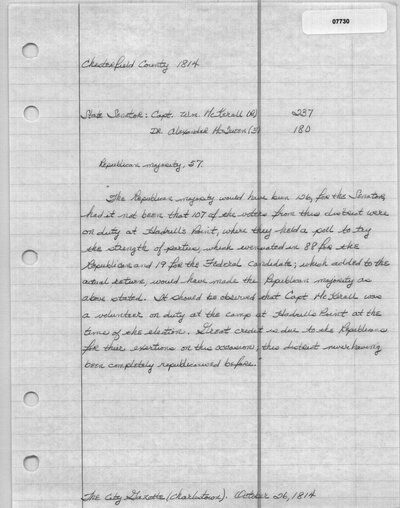 07730
Chesterfield County 1814
State Senator: Capt. Wm. McKerall (R) 237
Dr. Alexander McQueen (F) 180
Republican majority, 57.
"The Republican majority would have been 126, for the Senator,
had it not been that 107 of the voters from this district were
on duty at Hadrell's Point, where they held a poll to try
the strength of parties, which eventuated in 88 for the
Republican and 19 for the Federal Candidate; which added to the
actual return, would have made the Republican majority as
above stated. It should be observed that Capt McKerall was
a volunteer on duty at the camp at Hadrell's Point at the
time of the election. Great credit is due to the Republicans
for their exertions on this occasion; this district never having
been completely republicanised before."
The City Gazette (Charlestown). October 26, 1814